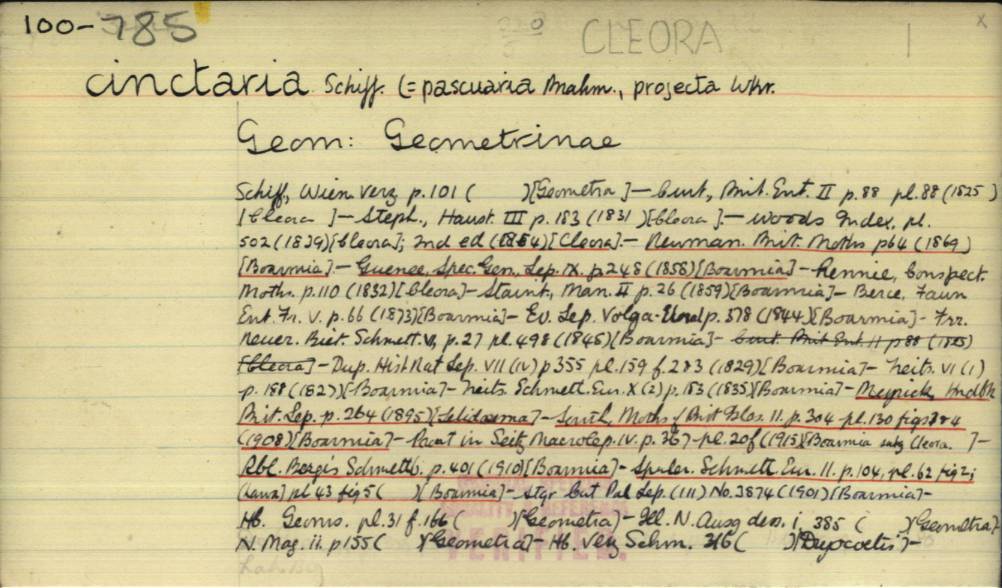 100-785 CLEORA 1
cinctaria Schiff. (= pascuaria Brahm., projecta Wkr.
Geom: Geometrinae
Schiff, Wien Verz p.101 ( )[Geometra]- Curt, Brit. Ent. II p.88 pl.88 (1825)
[Cleora ]- Steph., Haust. III p.183 (1831)[Cleora]- Woods Index, pl.
502 (1839)[Cleora]; 2nd ed (1854)[Cleora]- Newman. Brit. Moths p64 (1869)
[Boarmia]- Guenee, Spec. Gen. Lep. IX. p.248 (1858)[Boarmia]- Rennie, Conspect.
Moths. p.110 (1832)[Cleora]- Staint, Man. II p.26 (1859)[Boarmia]- Berce, Faun
Ent. Fr. V. p.66 (1873)[Boarmia]- Ev. Lep. Volga-Ural p.378 (1844)[Boarmia]- Frr.
neuer. Beit. Schmett. V, p.27 pl.498 (1845)[Boarmia]- Curt. Brit Ent. II p88 (1825)
[Cleora]- Dup. Hist Nat Lep. VII (IV) p355 pl.159 f.2+3 (1829)[Boarmia]- Treits. VI (1)
p.188 (1827)[Boarmia]- Treits. Schmett. Eur. X (2) p.183 (1835)[Boarmia]- Meyrick, Hndbk
Brit. Lep. p.264 (1895)[Selidosema]- South, Moths of Brit Isles. II. p.304 pl.130 figs 3+4
(1908)[Boarmia]- Prout in Seitz Macrolep. IV. p.367- pl.20f (1915)[Boarmia subg Cleora. ]-
Rbl. Berge's Schmettb. p.401 (1910)[Boarmia]- Spuler. Schmett. Eur. II. p.104, pl.62 fig 2;
(Larva) pl 43 fig 5 ( )[Boarmia]- Stgr Cat Pal Lep. (III) No.3874 (1901)[Boarmia]-
Hb. Geoms. pl.31 f.166 ( )[Geometra]- Ill. N. Ausg des. i. 385 ( )[Geometra]
N. Mag. ii. p155 ( )[Geometra]- Hb. Verz Schm. 316 ( )[Dryocoetis]-
VERIFIED.